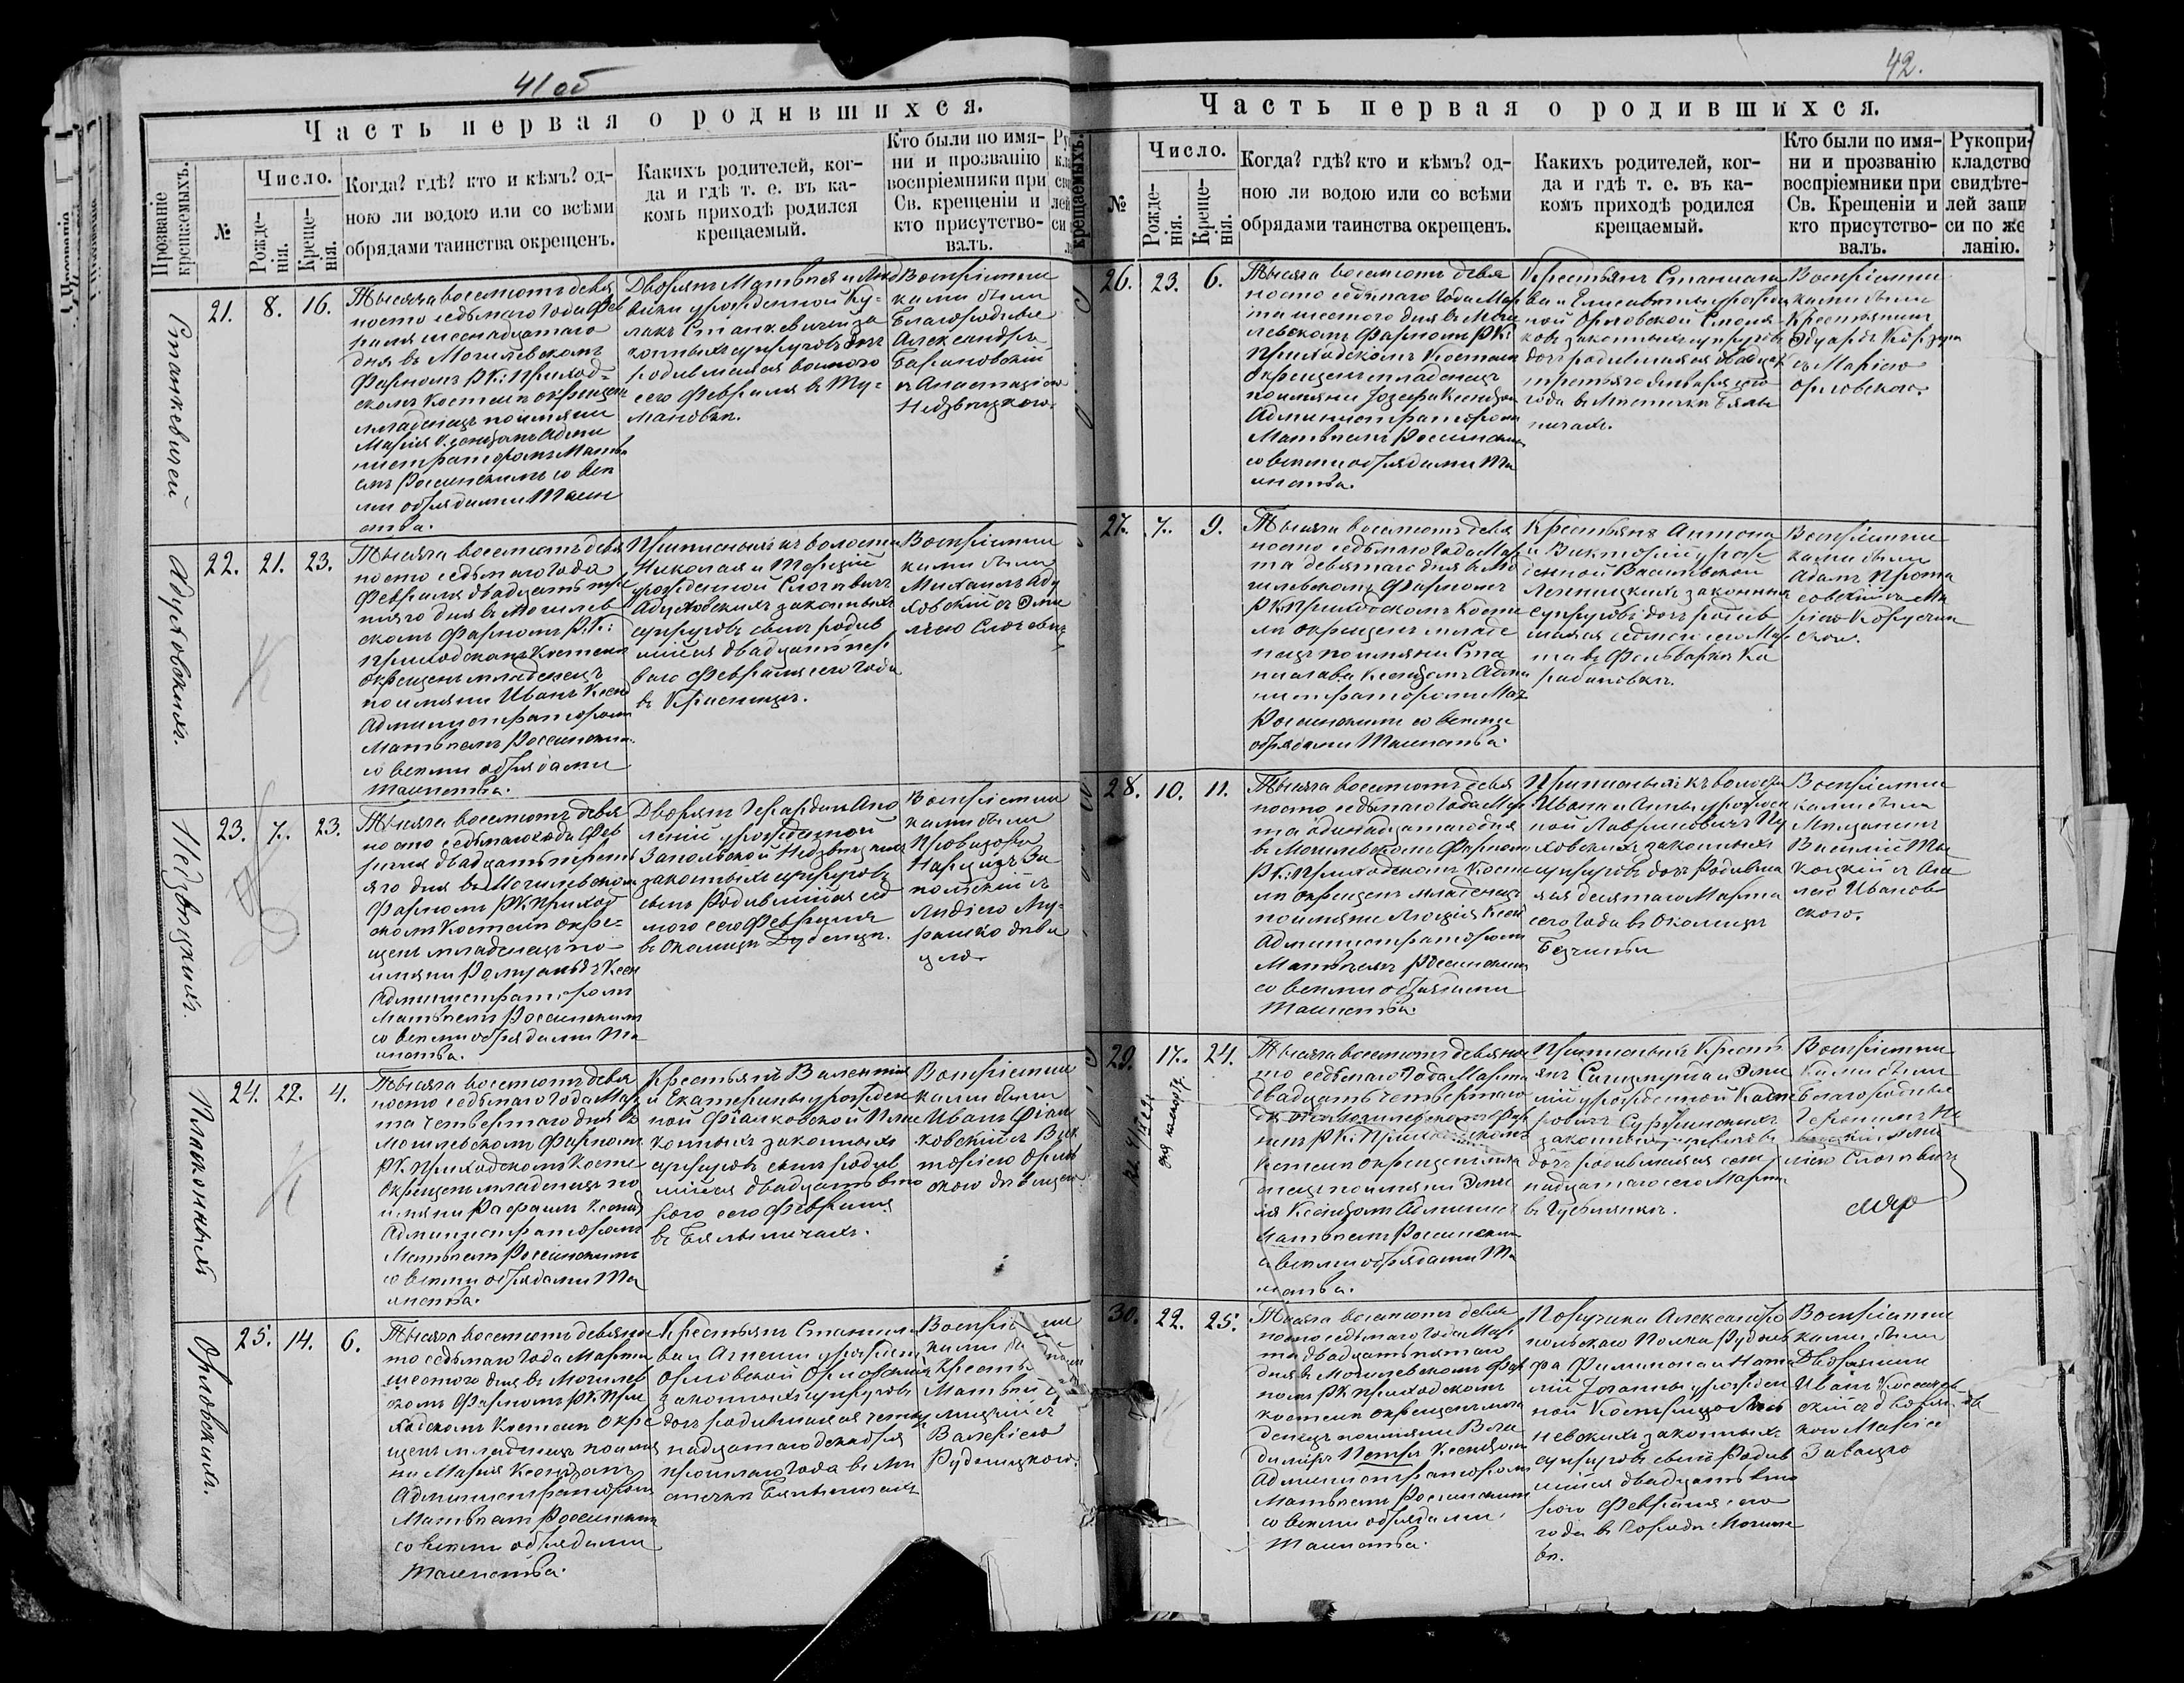 41 об
Часть первая о родившихся.
Прозваніе крещаемыхъ.
№
Число.
Рожде-
нія.
Креще-
нія.
Когда? гдѣ? кто и кѣмъ? од-
ною ли водою или со всѣми
обрядами таинства окрещенъ.
Какихъ родителей, ког-
да и гдѣ т. е. въ ка-
комъ приходѣ родился
крещаемый.
Кто были по имя-
ни и прозванію
воспріемники при
Св. крещеніи и
кто присутство-
валъ.
Станкевичей
21. 8. 16.
Тысяча восемьсотъ девя
носто седьмаго года Фев
раля шеснадцатаго
дня въ Могилевскомъ
Фарномъ Р.К. Приход-
скомъ Костелѣ окрещенъ
младенецъ по имяни
Марія Ксендзомъ Адми
нистраторомъ Матвѣ
емъ Россинскимъ со всѣ
ми обрядами Таин
ства.
Дворянъ Матвѣя и
урожденной Ку-
лакъ Станкевичей за
конныхъ супруговъ дочь
родившаяся восьмого
сего Февраля въ Ту-
мановкѣ.
Воспріемни
ками были
Благородные
Александръ
Барановскій
съ Анастазіею
Недзвѣцкою.
Адуховскихъ.
22. 21. 23.
Тысяча восемьсотъ девя
носто седьмаго года
Февраля двадцать тре
тяго дня въ Могилев
скомъ Фарномъ Р.К.
Приходскомъ Костелѣ
окрещенъ младенецъ
по имяни Иванъ Ксенд
Администраторомъ
Матвѣемъ Россинским
со всѣми обрядами
Таинства.
Приписныхъ къ волости
Николая и Терезіи
урожденной
Адуховскихъ законныхъ
супруговъ сынъ родив
шійся двадцать пер
ваго Февраля сего года
въ Красницѣ.
Воспріемни
ками были
Михаилъ Аду
ховскій съ Эми
ліею
Недзвѣцкихъ.
23. 7. 23.
Тысяча восемьсотъ девя
носто седьмаго года Фев
раля двадцать треть
яго дня въ Могилевском
Фарномъ Р.К. Приход
скомъ Костелѣ окре-
щенъ младенецъ по-
имяни Ромуальдъ Ксен
Администраторомъ
Матвѣемъ Россинскимъ
со всѣми обрядами Та
инства.
Дворянъ Герарда и Апо
леніи урожденной
Запольской Недзвѣцкихъ
законныхъ супруговъ
сынъ родившійся сед
мого сего Февраля
въ околицѣ Дубенцѣ.
Воспріемни
ками были
Провизоръ
Нарцизъ За
польскій съ
Лидіею Му-
рашко дѣви
цею.
Плаконныхъ
24. 22. 4.
Тысяча восемьсотъ девя
носто седьмаго года Мар
та четвертаго дня въ
Могилевскомъ Фарномъ
Р.К. Приходскомъ Косте
окрещенъ младенецъ по
имяни Рафаилъ Ксендз
Администраторомъ
Матвѣемъ Россинскимъ
со всѣми обрядами Та
инства.
Крестьянъ Валентія
и Екатерины урожден
ной Фіалковской Пла
конныхъ законныхъ
супруговъ сынъ родив
шійся двадцать вто
рого сего Февраля
въ Бялыничахъ.
Воспріемни
ками были
Иванъ Фіал
ковскій съ Вик
торіею Орлов
скою дѣвицею.
Орловскихъ.
25. 14. 6.
Тысяча восемьсотъ девяно
сто седьмаго года Марта
шестого дня въ Могилев
скомъ Фарномъ Р.К. При
ходскомъ Костелѣ окре
щенъ младенецъ по имя
ни Марія Ксендзомъ
Администраторомъ
Матвѣемъ Россинским
со всѣми обрядами
Таинства.
Крестьянъ Станисла
ва и Агнеши урожден
Орловской Орловскихъ
законныхъ супруговъ
дочь родившаяся четыр
надцатаго декабря
прошлаго года въ Мѣ
стечкѣ Бялыничахъ
Воспріемни
ками
Кресть
Матвѣй
съ
Валеріею
Рудницкою.
42.
Часть первая о родившихся.
крещаемыхъ.
№
Число.
Рожде-
нія.
Креще-
нія.
Когда? гдѣ? кто и кѣмъ? од-
ною ли водою или со всѣми
обрядами таинства окрещенъ.
Какихъ родителей, ког-
да и гдѣ т. е. въ ка-
комъ приходѣ родился
крещаемый.
Кто были по имя-
ни и прозванію
воспріемники при
Св. Крещеніи и
кто присутство-
валъ.
Рукопри-
кладство
свидѣте-
лей запи
си по же
ланію.
26. 23. 6.
Тысяча восемьсотъ девя
носто седьмаго года Мар
та шестого дня въ Моги
левскомъ Фарномъ Р.К.
Приходскомъ Костелѣ
окрещенъ младенецъ
по имяни Іозефа Ксендзом
Администраторомъ
Матвѣемъ Россинским
со всѣми обрядами Та
инства.
Крестьянъ Станисла
ва и Елисаветы урожден
ной Орловской
законныхъ супруговъ
дочь родившаяся двадцат
третьяго Января сего
года въ Мѣстечкѣ Бялы
ничахъ.
Воспріемни
ками были
Крестьянинъ
Эдуардъ Корзунъ
съ Маріею
Орловскою.
27. 7. 9.
Тысяча восемьсотъ девя
носто седьмаго года Мар
та девятаго дня въ Мо
гилевскомъ Фарномъ
Р.К. Приходскомъ Косте
лѣ окрещенъ младе
нецъ по имяни Ста
нислава Ксендзомъ Адми
нистраторомъ Мат
Россинскимъ со всѣми
обрядами Таинства.
Крестьянъ Антона
и Викторіи урож
денной
законных
супруговъ дочь родив
шаяся седьмого сего Мар
та въ Фольваркѣ Ка
рабановкѣ.
Воспріемни
ками были
Адамъ Прота
совскій съ Ма
ріею
скою.
28. 10. 11.
Тысяча восемьсотъ девя
носто седьмаго года Мар
та одинадцатаго дня
въ Могилевскомъ Фарном
Р.К. Приходскомъ Косте
лѣ окрещенъ младенецъ
по имяни Люція Ксен
Администраторомъ
Матвѣемъ Россинским
со всѣми обрядами
Таинства.
Приписныхъ къ волости
Ивана и Анны урожден
ной Лавриновичъ
законныхъ
супруговъ дочь родивша
яся десятаго Марта
сего года въ околицѣ
Воспріемни
ками были
Мѣщанинъ
Василій
съ
Иванов
скою.
29. 17. 24.
Тысяча восемьсотъ девяно
сто седьмаго года Марта
двадцать четвертаго
дня въ Могилевскомъ Фар
номъ Р.К. Приходскомъ
Костелѣ окрещенъ мла
денецъ по имяни Эмилія
Ксендзомъ Админис
Матвѣемъ Россинским
со всѣми обрядами Та
инства.
Приписныхъ Кресть
янъ Сигизмунда и Эми
ліи урожденной
законныхъ супруговъ
дочь родившаяся сем
надцатаго сего Марта
Воспріемни
ками были
Благородные
Геронимъ
съ Эми
ліею
30. 22. 25.
Тысяча восемьсотъ девя
носто седьмаго года Мар
та двадцать пятаго
дня въ Могилевскомъ Фар
номъ Р.К. Приходскомъ
Костелѣ окрещенъ мла
денецъ по имяни Вла
димиръ Петръ Ксендзом
Администраторомъ
Матвѣемъ Россинским
со всѣми обрядами
Таинства.
Поручика Александро
польскаго Полка Рудоль
фа Филимона и Ната
ліи Іоганны урожден
ной
законныхъ
супруговъ сынъ родив
шійся двадцать вто
рого Февраля сего
года въ городѣ Могиле
вѣ.
Воспріемни
ками были
Дворянинъ
Иванъ
скій съ
Маріею